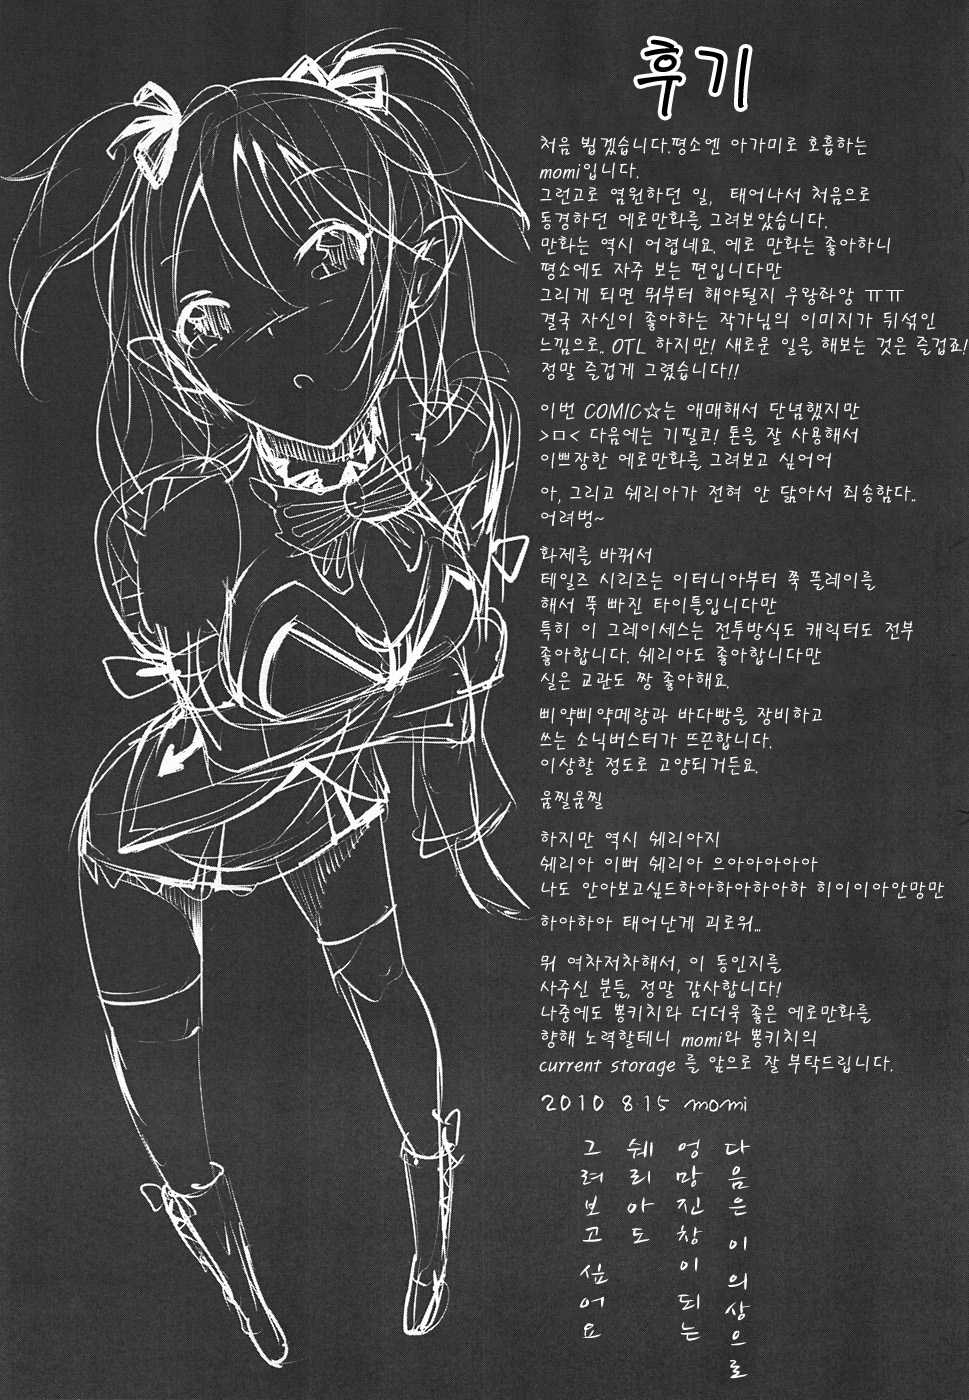 후기
처음 뵙겠습니다.평소엔 아가미로 호흡하는
momi입니다.
그런고로 염원하던 일, 태어나서 처음으로
동경하던 에로만화를 그려보았습니다.
만화는 역시 어렵네요. 에로 만화는 좋아하니
평소에도 자주 보는 편입니다만
그리게 되면 뭐부터 해야될지 우왕좌앙 ㅠㅠ
결국 자신이 좋아하는 작가님의 이미지가 뒤섞인
느낌으로.. OTL 하지만! 새로운 일을 해보는 것은 즐겁죠!
정말 즐겁게 그렸습니다!!
이번 COMIC☆는 애매해서 단념했지만
>ㅁ< 다음에는 기필코! 톤을 잘 사용해서
이쁘장한 에로만화를 그려보고 싶어어
아, 그리고 쉐리아가 전혀 안 닮아서 죄송함다..
어려벙~
화제를 바꿔서
테일즈 시리즈는 이터니아부터 쭉 플레이를
해서 푹 빠진 타이틀입니다만
특히 이 그레이세스는 전투방식도 캐릭터도 전부
좋아합니다. 쉐리아도 좋아합니다만
실은 교관도 짱 좋아해요.
삐약삐약메랑과 바다빵을 장비하고
쓰는 소닉버스터가 뜨끈합니다.
이상할 정도로 고양되거든요.
움찔움찔
하지만 역시 쉐리아지
쉐리아 이뻐 쉐리아 으아아아아아
나도 안아보고싶드하아하아하아하 히이이아안망만
하아하아 태어난게 괴로워...
뭐 여차저차해서, 이 동인지를
사주신 분들, 정말 감사합니다!
나중에도 뿅키치와 더더욱 좋은 에로만화를
향해 노력할테니 momi와 뿅키치의
current storage 를 앞으로 잘 부탁드립니다.
2010 8.15 momi
다음은 이 의상으로
엉망진창이 되는
쉐리아도
그려보고 싶어요